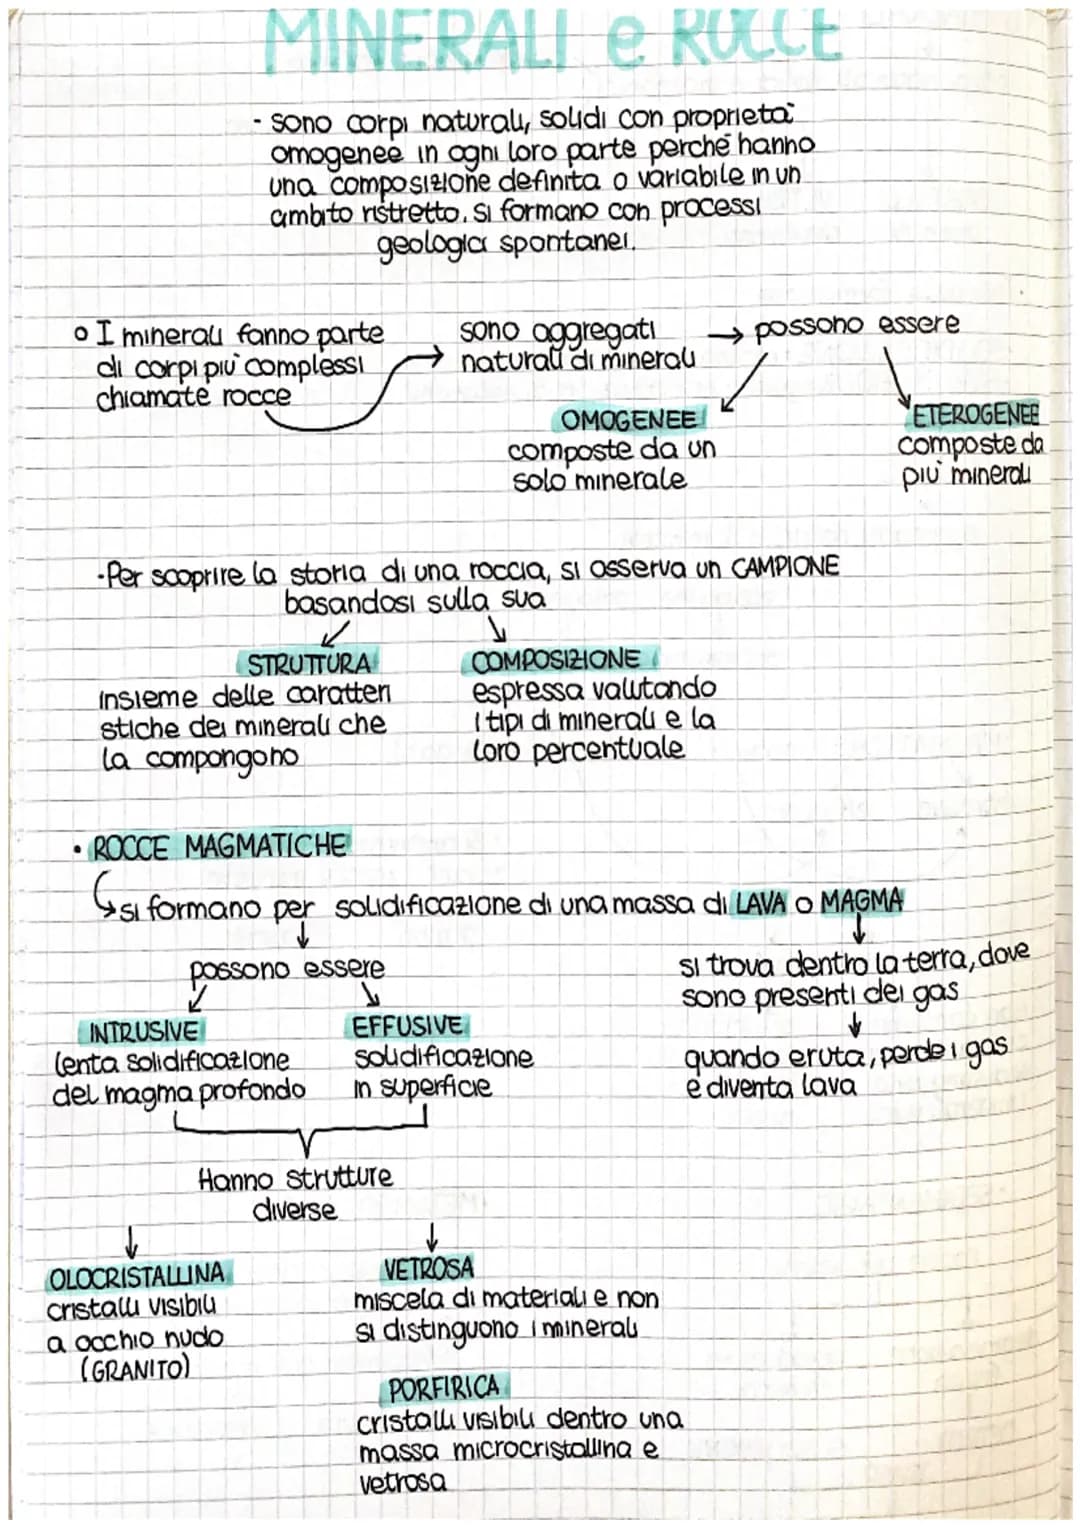 MINERALI e ROCCE
- sono corpi naturali, solidi con proprietà
omogenee in ogni loro parte perché hanno
una composizione definita o variabile in un
ambito ristretto. Si formano con processi
geologici spontanei.
o I minerali fanno parte
di corpi più complessi
chiamate rocce
sono aggregati
naturali di minerali
→ possono essere
OMOGENEE
composte da un
solo minerale
ETEROGENEE
composte da
più minerali
-Per scoprire la storia di una roccia, si osserva un CAMPIONE
basandosi sulla sua
STRUTTURA
insieme delle caratteri
stiche dei minerali che
la compongono
COMPOSIZIONE
espressa valutando
i tipi di minerali e la
loro percentuale
• ROCCE MAGMATICHE
si formano per solidificazione di una massa di LAVA o MAGMA
possono essere
INTRUSIVE
lenta solidificazione
del magma profondo
EFFUSIVE
solidificazione
in superficie
si trova dentro la terra, dove
sono presenti dei gas
quando erutta, perde i gas
e diventa lava
Hanno strutture
diverse
OLOCRISTALLINA
cristalli visibili
a occhio nudo
(GRANITO)
VETROSA
miscela di materiali e non
si distinguono i minerali
PORFIRICA
cristalli visibili dentro una
massa microcristallina e
vetrosa